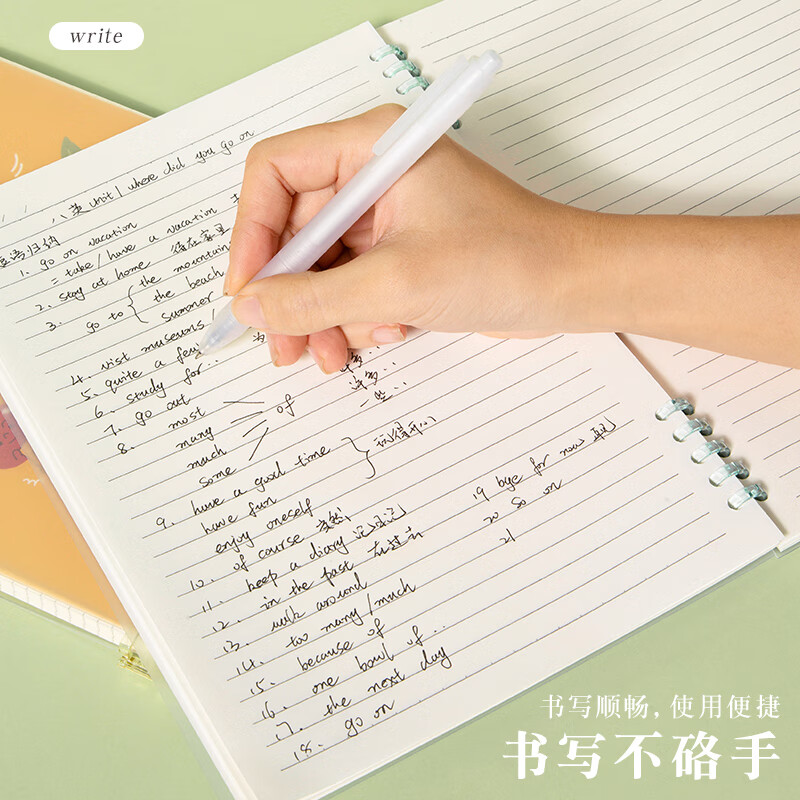 write
八英 Unit 1 where did you go on
短语归纳
1. go on vacation
= take/have a vacation
2. stay at home 待在家里
3. go to { the mountain
the beach
summer
4. visit museums
5. quite a few
6. study for...
7. go out
8. most
many
much
some
of
许多...
一些...
9. have a good time
have fun
enjoy oneself
玩得开心
10. of course 当然
11. keep a diary 记日记
12. in the past 在过去
13. walk around
14. too many/much
15. because of
16. one bowl of...
17. the next day
18. go on
19 bye for now 再见
20 so on
21
书写顺畅,使用便捷
书写不硌手